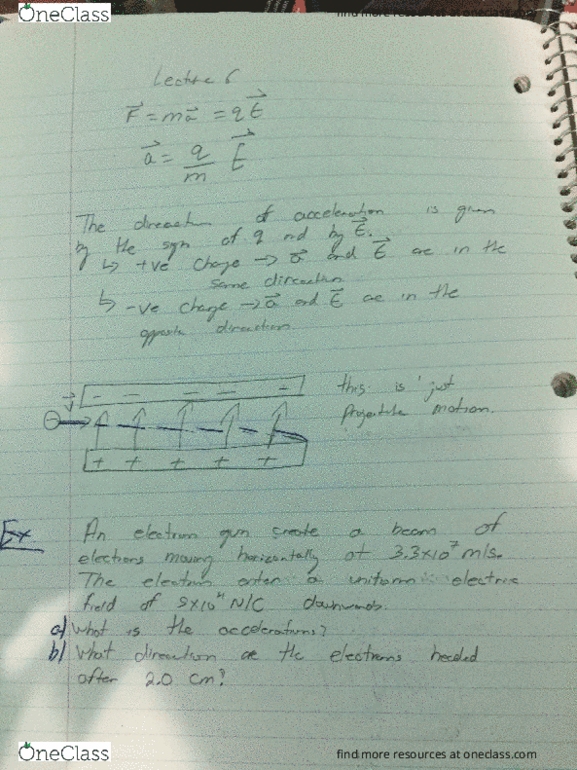 OneClass
find more resources at oneclass.com
Lecture 6
F = ma = qE
a = q/m E
The direction of acceleration is given
by the sign of q nd by E.
↳ +ve charge → a and E are in the
same direction
↳ -ve charge → a and E are in the
opposite direction
- - - - -
this is just
projectile motion.
v
+ + + + +
Ex An electron gun create a beam of
electrons moving horizontally at 3.3x10⁷ m/s.
The electron enter a uniform electric
field of 5x10⁴ N/C downwards.
a) What is the accelerations?
b) What direction are the electrons headed
after 2.0 cm?
OneClass
find more resources at oneclass.com